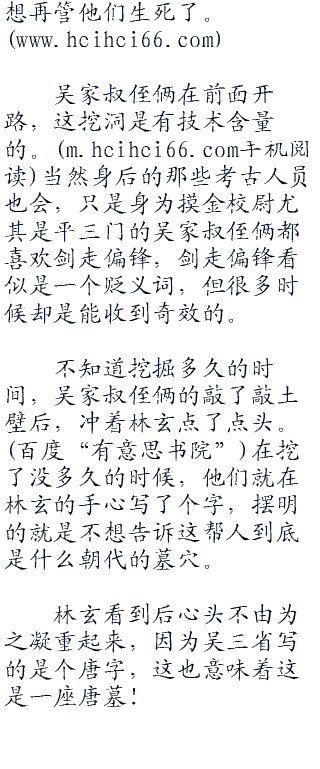 想再管他们生死了。
(www.hcihci66.com)
吴家叔侄俩在前面开
路，这挖洞是有技术含量
的。(m.hcihci66.com手机阅
读)当然身后的那些考古人员
也会，只是身为摸金校尉尤
其是平三门的吴家叔侄俩都
喜欢剑走偏锋，剑走偏锋看
似是一个贬义词，但很多时
候却是能收到奇效的。
不知道挖掘多久的时
间，吴家叔侄俩的敲了敲土
壁后，冲着林玄点了点头。
(百度“有意思书院”)在挖
了没多久的时候，他们就在
林玄的手心写了个字，摆明
的就是不想告诉这帮人到底
是什么朝代的墓穴。
林玄看到后心头不由为
之凝重起来，因为吴三省写
的是个唐字，这也意味着这
是一座唐墓！